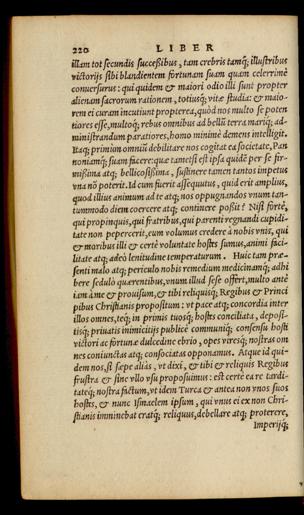 220 LIBER
illam tot secundis successibus, tam crebris tamq; illustribus
victorijs sibi blandientem fortunam suam quam celerrimè
conuersurus: qui quidem & maiori odio illi sunt propter
alienam sacrorum rationem, totiusq; vitæ studia: & maio-
rem ei curam incutiunt propterea, quòd nos multo se poten
tiores esse, multoq; rebus omnibus ad bellū terra mariq; ad-
ministrandum paratiores, homo minimè demens intelligit.
Itaq; primùm omniū debilitare nos cogitat ea societate, Pan
noniamq; suam facere: quæ tametsi est ipsa quidē per se fir-
missima atq; bellicosissima, sustinere tamen tantos impetus
vna nō poterit. Id cum fuerit assequutus, quid erit amplius,
quod illius animum ad te atq; nos oppugnandos vnum tan-
tummodo diem coercere atq; continere possit? Nisi fortè,
qui propinquis, qui fratribus, qui parenti regnandi cupidi-
tate non pepercerit, cum volumus credere à nobis vnis, qui
& moribus illi & certè voluntate hostes sumus, animi faci-
litate atq; adeò lenitudine temperaturum. Huic tam præ-
senti malo atq; periculo nobis remedium medicinamq; adhi
bere sedulò quærentibus, vnum illud sese offert, multo antè
iam à me & prouisum, & tibi reliquisq; Regibus & Princi
pibus Christianis propositum: vt pace atq; concordia inter
illos omnes, teq; in primis tuosq; hostes conciliata, deposi-
tisq; priuatis inimicitijs publicè communiq; consensu hosti
victori ac fortunæ dulcedine ebrio, opes viresq; nostras om
nes coniunctas atq; consociatas opponamus. Atque id qui-
dem nos, si sæpe aliàs, vt dixi, & tibi & reliquis Regibus
frustra & sine vllo vsu proposuimus: est certè ea re tardi-
tateq; nostra factum, vt idem Turca & antea non vnos suos
hostes, & nunc Ismaelem ipsum, qui vnus ei ex non Chri-
stianis imminebat eratq; reliquus, debellare atq; proterere,
Imperijq;